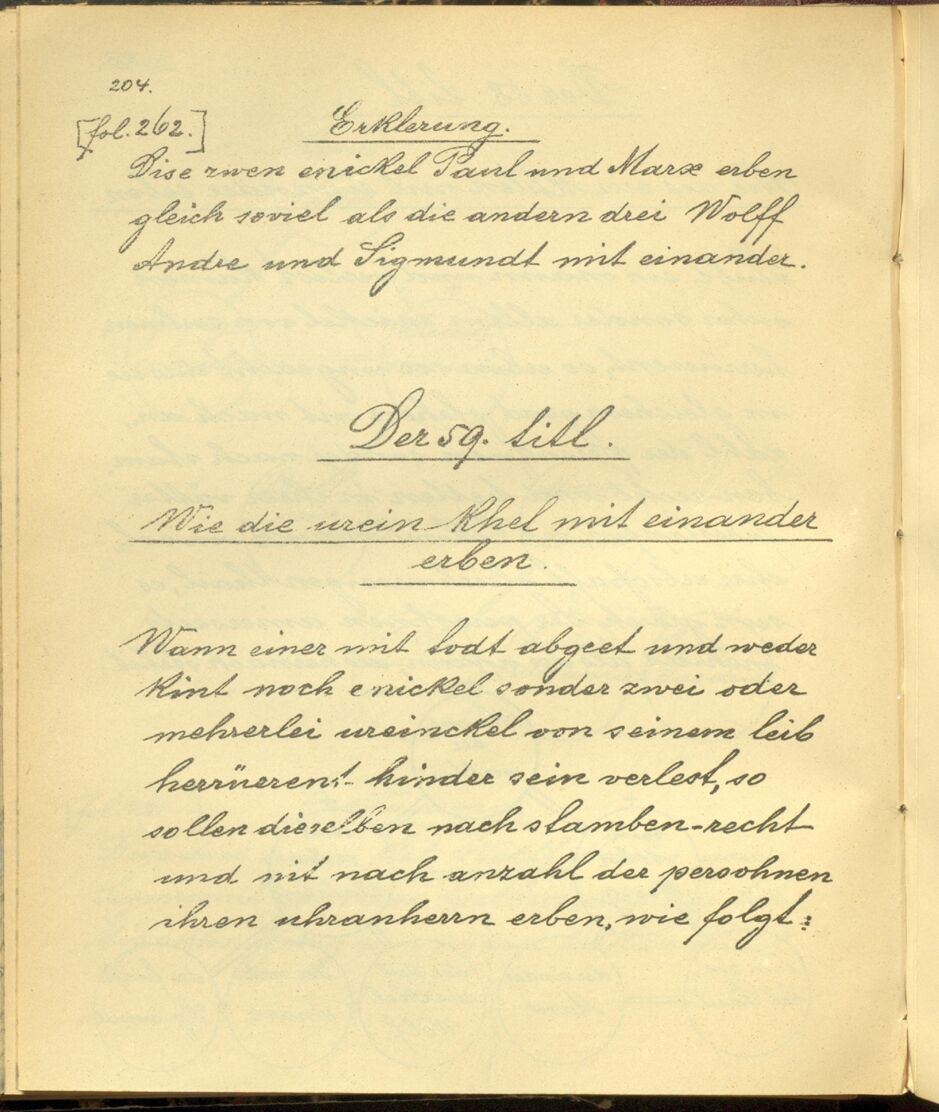 204.
[fol. 262.]
Erklerung.
Dise zwen enickel Paul und Marx erben
gleich soviel als die andern drei Wolff
Andre und Sigmundt mit einander.
Der 59. titl.
Wie die urein Khel mit einander
erben.
Wann einer mit todt abgeet und weder
kint noch enickel sonder zwei oder
mehrerlei ureinckel von seinem leib
herrüerent kinder sein verlest, so
sollen dieselben nach stamben-recht
und nit nach anzahl der persohnen
ihren uhranherrn erben, wie folgt: